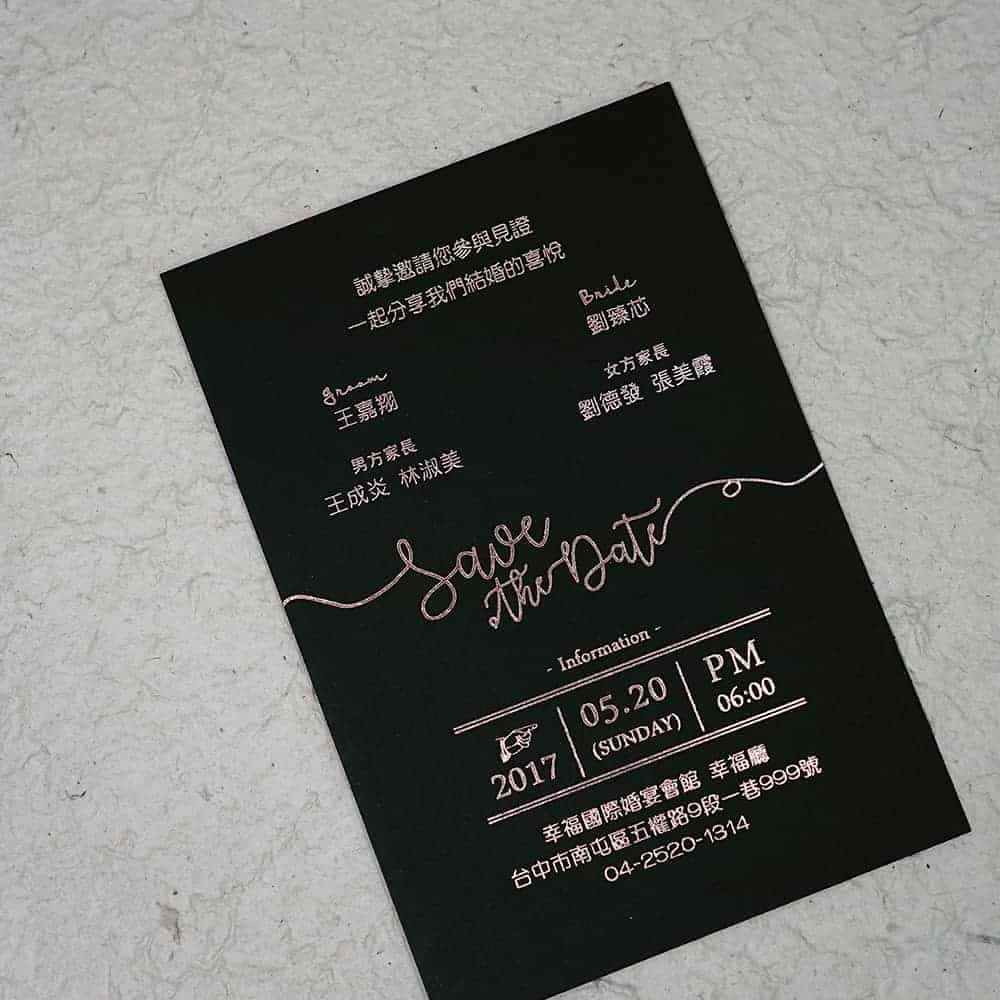 誠摯邀請您參與見證
一起分享我們結婚的喜悅
Groom
王嘉翔
男方家長
王成炎 林淑美
Bride
劉臻芯
女方家長
劉德發 張美霞
Save
the Date
- Information -
2017
05.20
(SUNDAY)
PM
06:00
幸福國際婚宴會館 幸福廳
台中市南屯區五權路9段一巷999號
04-2520-1314